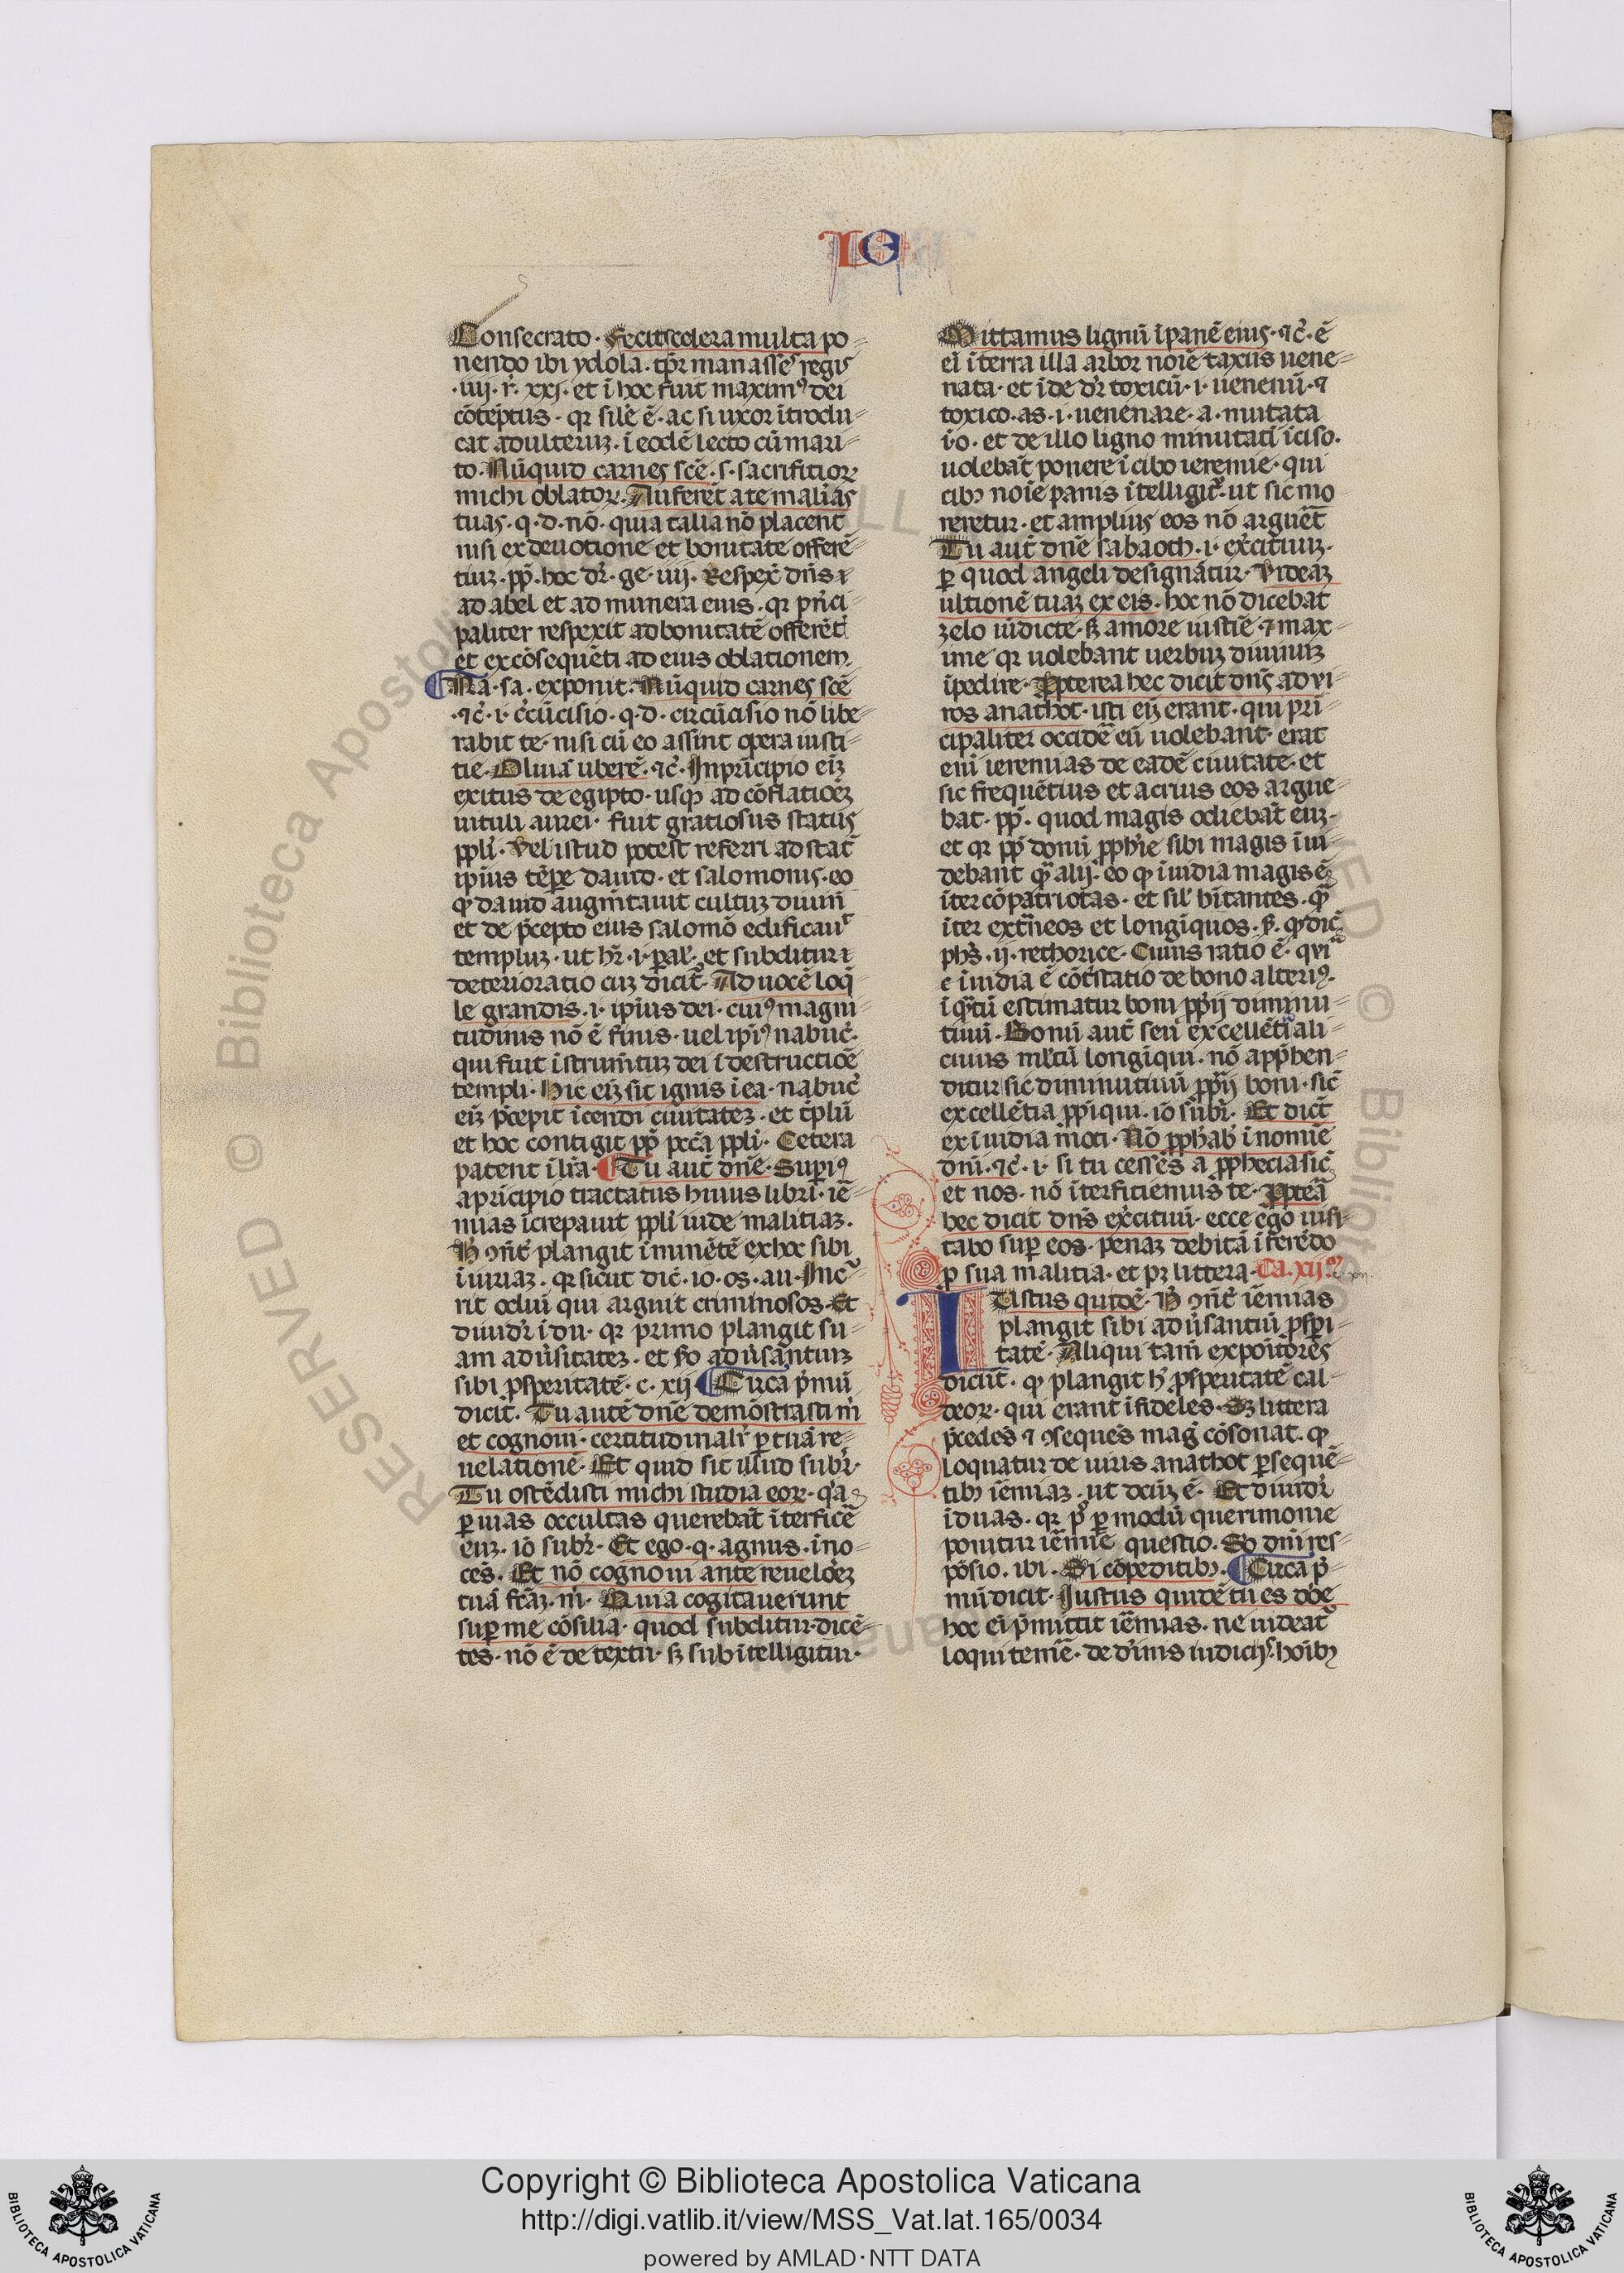 IE
Consecrato. Fecit scelera multa po-
nendo ibi ydola. tp̄r manasse regis
.iiij. r̄. xxj. et ī hoc fuit maximꝰ dei
cōtēptus. qr̄ sile ē. ac si uxor ītrodu-
cat adulteruꝫ. ī eodē lecto cū mari-
to. Nūquid carnes scē. s. sacrifitioꝝ
michi oblatoꝝ. Auferēt a te malīas
tuas. q. d. nō. quia talia nō placent
nisi ex deuotione et bonitate offerē-
tiuꝫ. pp̄. hoc dr̄. ge. iiij. Respex̄ dn̄s
ad abel et ad munera eius. qr̄ pn̄ci-
paliter respexit ad bonitatē offerēt̄
et ex cōsequēti ad eius oblationem.
Rā. sa. exponit. Nūquid carnes scē
.⁊c̄. i. c̄cūcisio. q. d. circūcisio nō libe-
rabit te. nisi cū eo assint opera iusti-
tie. Oliuā uberē. ⁊c̄. In pricipio eiꝫ
exitus de egipto. usqꝫ ad cōflatioēꝫ
uituli aurei. fuit gratiosus status
ppl̄i. Vel istud potest referri ad stat̄
ipius tēpe dauid. et salomonis. eo
ꝙ dauid augm̄tauit cultuꝫ diuin̄
et de p̄cepto eius salomō edificauᵗ
templuꝫ. ut hr̄. i. pal̄. et subditur
deterioratio cuꝫ dicit̄. Ad uocē loq̄
le grandis. i. ipius dei. cuiꝰ magni-
tudinis nō ē finis. uel ipiꝰ nabuc̄.
qui fuit īstrum̄tuꝫ dei ī destructioē
templi. Hic eiꝫ sic ignis ī ea. nabuc̄
eiꝫ p̄cepit īcendi ciuitateꝫ. et t̄plū
et hoc contigit pp̄ pcc̄a ppl̄i. Cetera
patent ī lr̄a. Tu aut̄ dn̄e. Supiꝰ
a pricipio tractatus huius libri. iē-
mias īcrepauit ppl̄i iude malitiaꝫ.
H̄ ꝯn̄t̄ plangit īminētē ex hoc sibi
īiuriaꝫ. qr̄ sicut dic̄. io. os. au. Inc̄-
rit odiū qui arguit criminosos. Et
diuidr̄ ī du. qr̄ primo plangit su-
am adūsitateꝫ. et s̄o adūsantiuꝫ
sibi ꝓsperitatē. c. xij. Circa p̄mū
dicit. Tu autē dn̄e demōstrasti m̄
et cognoui. certitudinalr̄ p tuā re-
uelationē. Et quid sit illud subr̄.
Tu ostēdisti michi studia eoꝝ. qᵃ
p uias occultas querebāt īterficē
euꝫ. iō subr̄. Et ego. q. agnus. ino-
cēs. Et nō cognoui ante reueloēꝫ
tuā fc̄aꝫ. m̄. Quia cogitauerunt
sup me cōsilia. quod subditur. dicē-
tes. nō ē de textu. sꝫ subītelligitur.
Mittamus lignū ī panē eius. ⁊c̄. ē
eī ī terra illa arbor noīe taxus uene-
nata. et īde dr̄ toxicū. i. uenenū. ⁊
toxico. as. i. uenenare. a. mutata
ī. o. et de illo ligno minutati īciso.
uolebāt ponere ī cibo ieremie. qui
cibꝫ noīe panis ītelligit̄. ut sic mo
reretur. et amplius eos nō arguēt
Tu aut̄ dn̄e sabaoth. i. exc̄ituuꝫ.
p quod angeli designātur. Videaꝫ
ultionē tuaꝫ ex eis. hoc nō dicebat
zelo uīdicte. sꝫ amore iustīe. ⁊ max-
ime qr̄ uolebant uerbuꝫ diuinuꝫ
īpedire. Ppterea hec dicit dn̄s ad vi-
ros anathot. isti eīꝫ erant. qui prī-
cipaliter occidē eū uolebant. erat
enī ieremias de eadē ciuitate. et
sic frequētius et acrius eos argue-
bat. pp̄. quod magis odiebāt euꝫ.
et qr̄ pp̄ donū pphīe sibi magis īui-
debant qᵃ alij. eo ꝙ īuidia magis ē
īter cōpatriotas. et sil̄ hītantes. qᵃ
īter ext̄neos et longīquos. ꝙ dic̄
phs̄. ij. rethorice. Cuius ratio ē. qr̄
īuidia ē cōt̄statio de bono alteriꝰ.
ī qᵃtū estimatur boni pp̄ij diminu-
tiui. Bonū aut̄ seu excellētia ali-
cuius ml̄tū longīqui. nō app̄hen-
ditur sic diminutiuū pp̄ij boni. sic̄
excellētia ppīqui. iō subr̄. Et dic̄t
ex īuidia moti. Nō pphab̄ ī nomīe
dn̄i. ⁊c̄. i. si tu cesses a pphecia sic̄
et nos. nō īterficiemus te. Ppteā
hec dicit dn̄s exc̄ituū. ecce ego uisi-
tabo sup eos. penaꝫ debitā īferēdo
p sua malitia. et pꝫ littera. Ca. xij.
Iustus quidē. H̄ ꝯn̄t̄ iēmias
plangit sibi adūsantiū ꝓspi-
tatē. Aliqui tam̄ expoitores
dicūt. ꝙ plangit h̄ ꝓsperitatē cal-
deoꝝ. qui erant īfideles. Sꝫ littera
p̄cedēs ⁊ ꝯsequēs maḡ cōsonat. ꝙ
loquatur de uiris anathot psequē-
tibꝫ iēmiaꝫ. ut dc̄uꝫ ē. Et diuidr̄
ī duas. qr̄ pᵒ p modū querimonie
ponitur iēmie questio. So dn̄i res-
pōsio. ibi. Si cōpeditibꝫ. Circa p̄-
mū dicit. Iustus quidē tu es dōe
hoc eī p̄mittit iēmias. ne uideat̄
loqui temē. de dīnis iudicijs. hoībꝫ
Copyright © Biblioteca Apostolica Vaticana
http://digi.vatlib.it/view/MSS_Vat.lat.165/0034
powered by AMLAD·NTT DATA
BIBLIOTECA APOSTOLICA VATICANA
BIBLIOTECA APOSTOLICA VATICANA